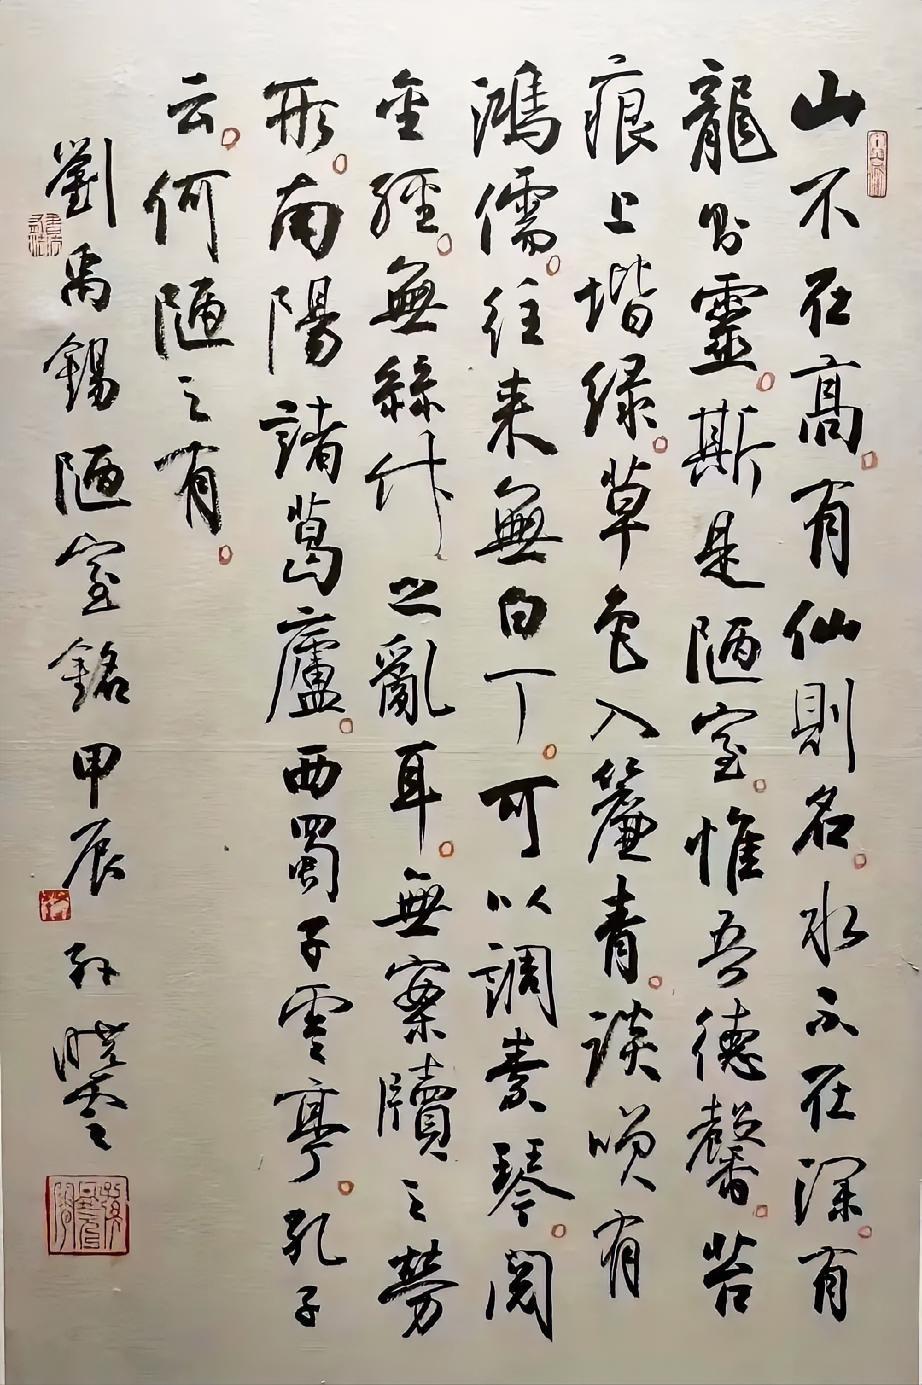 山不在高。有仙則名。水不在深。有
龍则靈。斯是陋室。惟吾德馨。苔
痕上堦緑。草色入簾青。談咲有
鴻儒。往来無白丁。可以調素琴。閱
金經。無絲竹之亂耳。無案牘之勞
形。南陽諸葛廬。西蜀子雲亭。孔子
云。何陋之有。
劉禹錫陋室銘甲辰孙曉雲